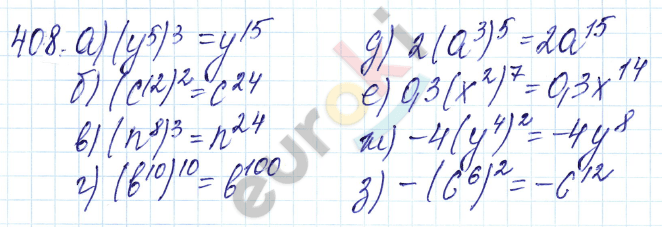 408. а) (y⁵)³ = y¹⁵
б) (c¹²)² = c²⁴
в) (n⁸)³ = n²⁴
г) (b¹⁰)¹⁰ = b¹⁰⁰
д) 2(a³)⁵ = 2a¹⁵
е) 0,3(x²)⁷ = 0,3x¹⁴
ж) -4(y⁴)² = -4y⁸
з) -(c⁶)² = -c¹²
euroki